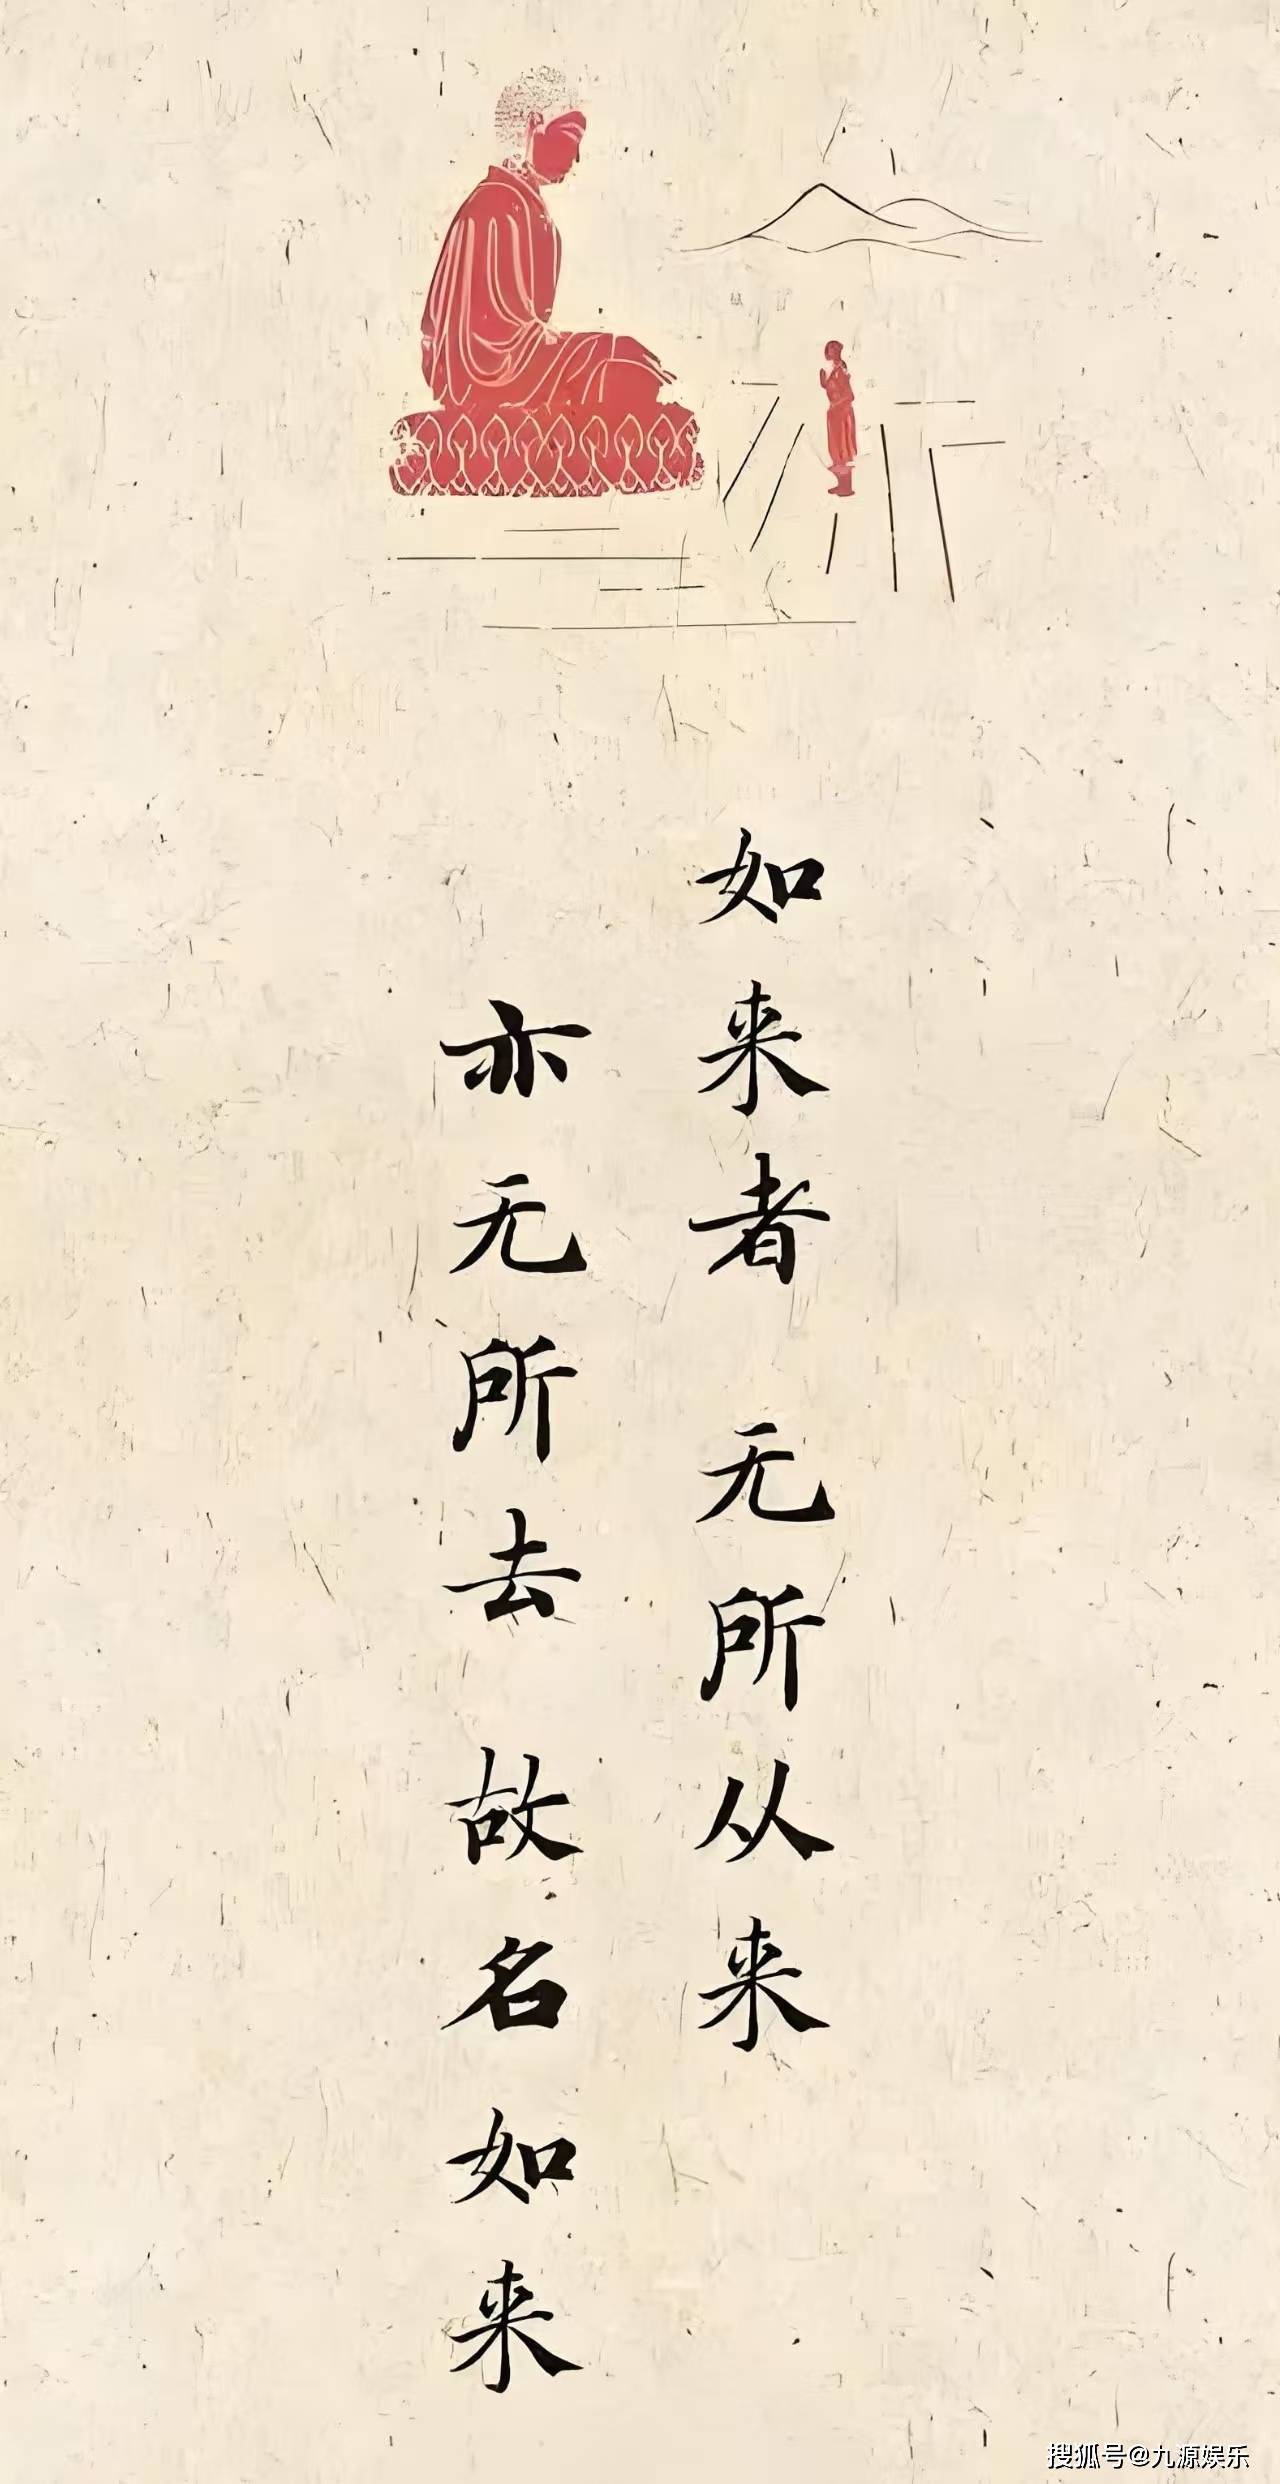 如来者 无所从来
亦无所去 故名如来
搜狐号@九源娱乐